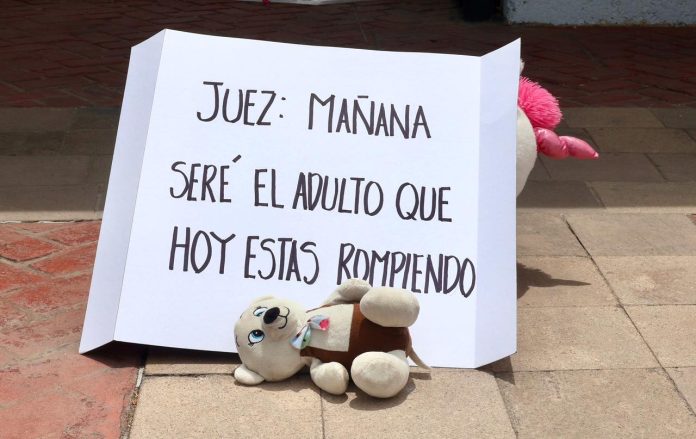 JUEZ: MAÑANA
SERÉ EL ADULTO QUE
HOY ESTAS ROMPIENDO